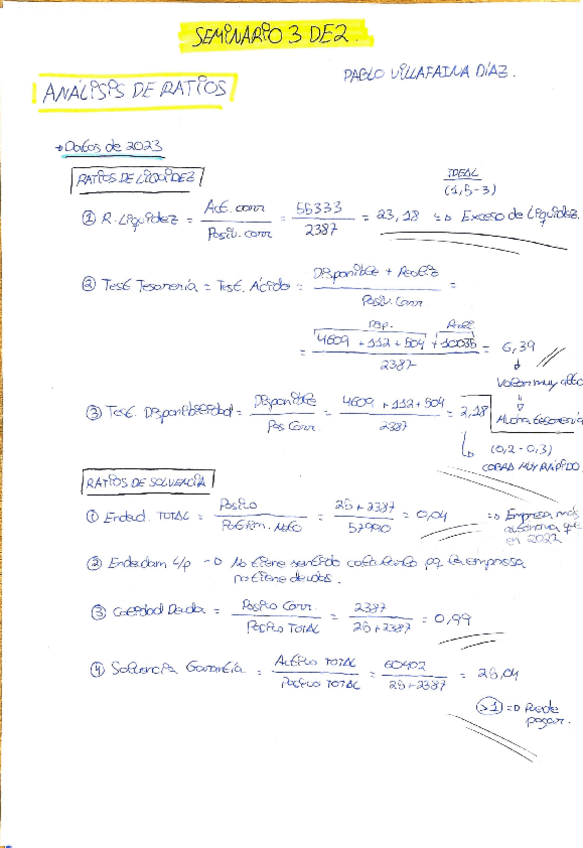 SEMINARIO 3 DE2.
PABLO VILLAFAINA DÍAZ.
ANÁLISIS DE RATIOS
→Datos de 2023
RATIOS DE LIQUIDEZ
IDEAL
(1,5-3)
① R. Liquidez = Act. corr / Pasiv. corr = 55333 / 2387 = 23,18 => Exceso de Liquidez.
② Test. Tesorería = Test. Ácido = Disponible + Realiz / Pasiv. Corr =
Disp.
= 4609 + 112 + 504 + 10035 / 2387 = 6,39
Valor muy alto
Mucha tesorería
③ Test. Disponibilidad = Disponible / Pas Corr = 4609 + 112 + 504 / 2387 = 2,18
(0,2 - 0,3)
COBRA MUY RÁPIDO.
RATIOS DE SOLVENCIA
① Endeud. TOTAL = Pasivo / Patrim. Neto = 25 + 2387 / 57990 = 0,04 => Empresa más autónoma que en 2022
② Endeudam L/p → No tiene sentido calcularlo pq la empresa
no tiene deudas.
③ Calidad Deuda = Pasivo Corr. / Pasivo TOTAL = 2387 / 25 + 2387 = 0,99
④ Solvencia Garantía = Activo TOTAL / Pasivo TOTAL = 60402 / 25 + 2387 = 25,04
>1 => Puede
pagar.